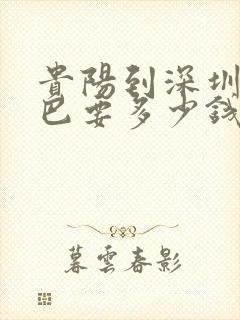 貴陽到深圳
巴要多少錢
暮雲春影